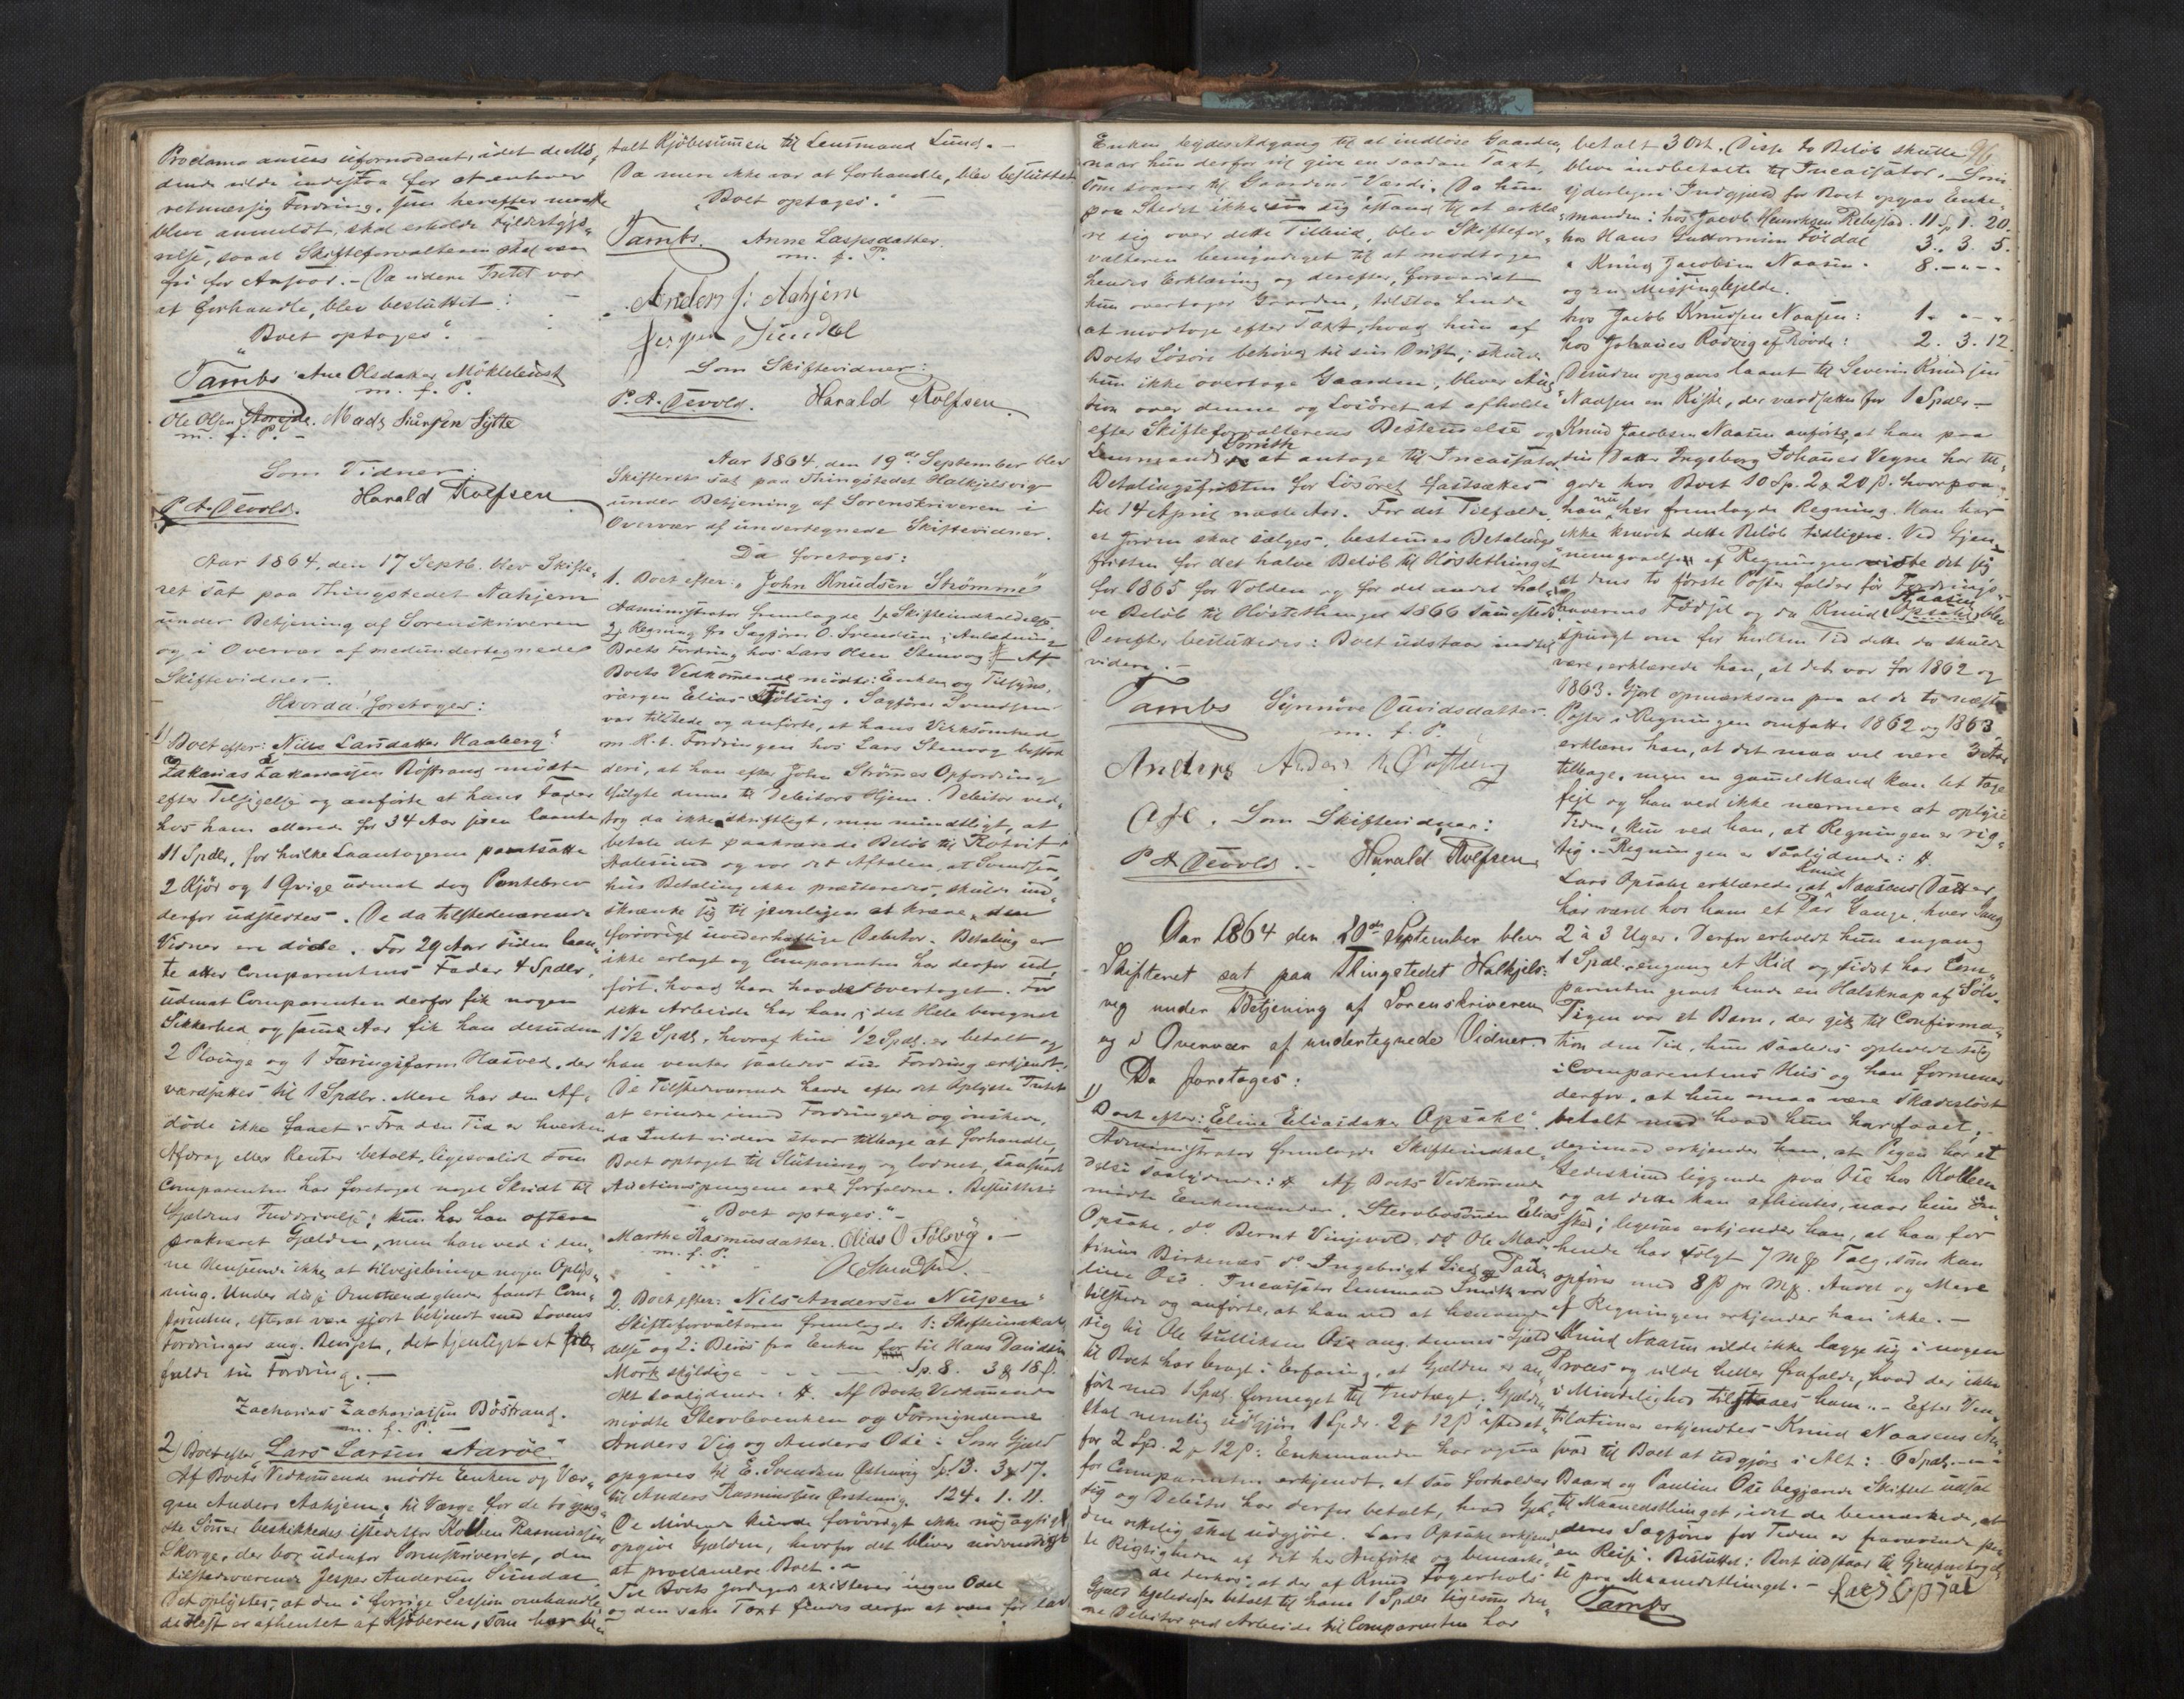 Proclama ansees ufornødent, idet de Mø-
dende vilde indestaa for at enhver
retmæssig Fordring, som herefter maatte
blive anmeldt, skal erholde Fyldestgjø-
relse, saaat Skifteforvalteren skal være
fri for Ansvar. - Da videre Intet var
at forhandle, blev besluttet:
"Boet optages".
Tambs Ane Olsdatter Møkleb​ust
m. f. P.
Ole Olsen Mads Sjursen Sytte
m. f. P.
Som Vidner:
P. A. Devold. Harald Rolfsen
Aar 1864, den 17 Septb. blev Skifte-
ret sat paa Thingstedet Aahjem
under Betjening af Sorenskriveren
og i Overvær af medundertegnede
Skiftevidner.
Hvorda foretoges:
1) Boet efter: Nille Larsdatter Haaberg"
Zakarias Zakariassen Böstrand mödte
efter Tilsigelse og anförte at hans Fader
hos ham allerede for 34 Aar siden laante
11 Spdlr, for hvilke Laantageren pantsatte
2 Kjör og 1 Qvige udenat dog Pantebrev
derfor udstedtes. De da tilstedeværende
Vidner ere döde. For 29 Aar siden laan-
te atter Comparentens Fader 4 Spdlr,
udenat Comparenten derfor fik nogen
Sikkerhed og samme Aar fik han desuden
2 Plouge og 1 Færingsfarm Hasved, der
værdsattes til 1 Spdlr. Mere har den Af-
döde ikke faaet. Fra den Tid er hverken
Afdrag eller Renter betalt, ligesaalidt som
Comparenten har foretaget noget Skridt til
Gjældens Inddrivelse; kun har han oftere
paakrævet Gjælden, men han ved i den-
ne Henseende ikke at tilvejebringe nogen Oplys-
ning. Under disse Omstændigheder fandt Com-
parenten, efterat være gjort bekjendt med Lovens
Fordringer ang. Beviset, det tjenligst at fra-
falde sin Fordring. -
Zacharias Zachariassen Böstrand.
m. f. P.
2) Boet efter "Lars Larsen Aaröe"
Af Boets Vedkommende mødte Enken og Vær-
gen Anders Aahjem; til Værge for de to yng-
ste Sönner beskikkedes istedetfor Kolben Rasmussen
Skorge, der bor udenfor Sorenskriveriet, den
tilstedeværende Jesper Andersen Sundal
Det oplystes, at den i forrige Session omhandle-
de Hest er afhentet af Kjøberen, som har be-
talt Kjöbesummen til Lensmand Lund. -
Da mere ikke var at forhandle, blev besluttet
"Boet optages."
Tambs. Anne Laspsdatter.
m. f. P.
Anders J: Aahjem
Jesper Sundal
Som Skiftevidner:
P. A. Devold. Harald Rolfsen.
Aar 1864, den 19de September blev
Skifteret sat paa Thingstedet Halkjelsvig
under Betjening af Sorenskriveren i
Overvær af undertegnede Skiftevidner.
Da foretoges:
1. Boet efter: "John Knudsen Strömme"
Administrator fremlagde 1, Skifteindkaldelse
2, Regning fra Sagfører O. Svendsen i Anledning
Boets Fordring hos Lars Olsen Stenvog. Af
Boets Vedkommende mødte: Enken og Tilsyns-
værgen Elias Fölsvig. Sagförer Svendsen
var tilstede og anførte, at hans Virksomhed
m. H. t. Fordringen hos Lars Stenvog bestod
deri, at han efter John Strömmes Opfordring
fulgte denne til Debitors Hjem. Debitor ved-
tog da ikke skriftligt, men mundtligt, at
betale det paakrævede Beløb til
Aalesund og var det Aftalen, at Svendsen,
hvis Betaling ikke præsteredes, skulde ind-
skrænke sig til jevnligen at kræve den
forøvrigt uvederhæftige Debitor. Betaling er
ikke erlagt og Comparenten har derfor ud-
ført, hvad han havde overtaget. For
dette Arbeide har han i det Hele beregnet
1 1/2 Spdl, hvoraf kun 1/2 Spdl. er betalt og
han venter saaledes sin Fordring erkjendt.
De Tilstedeværende havde efter det Oplyste Intet
at erindre imod Fordringen og ønskede,
da Intet videre stod tilbage at forhandle,
Boet optaget til Slutning og Lodnet, saasnart
Auctionspengene ere forfaldne. Besluttet:
"Boet optages." -
Marthe Rasmusdatter. Elias O Fölsvig. -
m. f. P.
O Svendsen.
2. Boet efter: Nils Andersen Nupen"
Skifteforvalteren fremlagde 1: Skifteindkal-
delse og 2: Bevis fra Enken for til Hans Davidsen
Mork skyldige - - - Sp. 8. 3 # 18 ß.
Alt saalydende: #. Af Boets Vedkommende
mødte Stervboenken og Formynderne
Anders Vig og Anders Odi: Som Gjæld
opgaves til E. Svendsen Østenvig Sp. 13. 3 # 17.
til Anders Rasmussen Ørstenvig. 124. 1. 11.
De Mødende kunde forøvrigt ikke nøiagtigt
opgive Gjælden, hvorfor det bliver nødvendigt
at proclamere Boet. -
Til Boets Jordegods existerer ingen Odel
og den satte Taxt findes derfor at være for lav.
96
Enken tilbydes Adgang til at indløse Gaarden,
naar hun derfor vil give en saadan Taxt,
som svarer til Gaardens Værdi. Da hun
paa Stedet ikke saa sig istand til at erklæ-
re sig over dette Tilbud, blev Skiftefor-
valteren bemyndiget til at modtage
hendes Erklæring og derefter, forsaavidt
hun overtager Gaarden, tilstaa hende
at modtage efter Taxt, hvad hun af
Boets Løsøre behøver til sin Drift; skulde
hun ikke overtage Gaarden, bliver Auc-
tion over denne og Løsøret at afholde
efter Skifteforvalterens Bestemmelse og
Lensmand Smith at antage til Incassator.
Betalingsfristen for Løsøret fastsættes
til 14 April næste Aar. For det Tilfælde,
at Jorden skal sælges, bestemes Betalings-
fristen for det halve Beløb til Høstethinget
for 1865 for Volden og for det andet hal-
ve Beløb til Høstethinget 1866 sammesteds.
Derefter besluttedes: Boet udstaar indtil
videre. -
Tambs Synnöve Davidsdatter.
m. f. P.
Anders Anders
Som Skiftevidner:
P A Devold. - Harald Rolfsen
Aar 1864 den 20de September blev
Skifteret sat paa Thingstedet Halkjels-
vig under Betjening af Sorenskriveren
og i Overvær af undertegnede Vidner.
Da foretoges:
1)
Boet efter: Eline Eliasdatter Opsahl".
Administrator fremlagde Skifteindkal-
delse saalydende: #. Af Boets Vedkommende
mødte Enkemanden. Stervbosønnen Elias
Opsahl, do Bernt Vinjevold, do Ole Mar-
tinus Birkenes do Ingebrigt Lied og Pau-
line Ose. Incassator Lensmand Smith var
tilstede og anførte, at han ved at henvende
sig til Ole Gulliksen Ose ang. dennes Gjæld
til Boet har bragt i Erfaring, at Gjælden er an-
ført med 1 Spd. formeget til Indtægt; Gjælden
skal nemlig udgjøre 1 Spdr. 2 # 12 ß istedet
for 2 Sp. 2 # 12 ß: Enkemanden har ogsaa
for Comparenten erkjendt, at saa forholder
sig og Debitor har derfor betalt, hvad Gjæl-
den rettelig skal udgjøre. Lars Opsahl erkjend-
te Rigtigheden af det her Anførte og bemærke-
de derhos, at der af Knud Fagerhol
Gjæld ligeledes er betalt til ham 1 Spdlr ligesom den-
ne Debitor ved Arbeide til Comparenten har
betalt 3 Ort. Disse to Beløb skulle
blive indbetalte til Incassator. Som
yderligere Indgjæld for Boet opgav Enke-
manden: hos Jacob Henriksen Rebestad. 11 Sp 1. 20.
hos Hans Guttormsen Följdal 3. 3. 5.
" Knud Jacobsen Naasen. 8. - " -
og en Messingkjedel.
hos Jacob Knudsen Naasen: 1. - " -
hos Johannes Rødvig af Rövde: 2. 3. 12.
Desuden opgaves laant til Severin Knudsen
Naasen en Kiste, der værdsattes for 1 Spdlr. -
Knud Jacobsen Naasen anførte, at han paa
sin Datter Ingeborg Johannes Vegne har til-
gode hos Boet 10 Sp. 2 # 20 ß. hvorpaa
han nu her fremlagde Regning. Han har
ikke krævet dette Beløb tidligere. Ved Gjen-
nemgaaelsen af Regningen viste det sig
at dens to første Poster falder før Fordrings-
haverens Fødsel og da Knud Naasen blev
spurgt om for hvilken Tid dette da skulde
være, erklærede han, at det var for 1862 og
1863. Gjort opmærksom paa at de to næste
Poster i Regningen omfatter 1862 og 1863,
erklærer han, at det maa vel være 3 Aar
tilbage, men en gammel Mand kan let tage
fejl og han ved ikke nærmere at oplyse
Tiden, kun ved han, at Regningen er rig-
tig. - Regningen er saalydende: #.
Lars Opsahl erklærede, at Knud Naasens Datter
har været hos ham et Par Gange, hver Gang
2 à 3 Uger. Derfor erholdt hun engang
1 Spdl., engang et Kid og sidst har Com-
parenten givet hende en Halsknap af Sølv.
Pigen var et Barn, der gik til Confirma-
tion den Tid, hun saaledes opholdt sig
i Comparentens Hus og han formener
derfor, at hun maa være skadesløst
betalt med hvad hun har faaet,
derimod erkjender han, at Pigen har et
Gedeskind liggende paa Ose hos Kolben
og at dette kan afhentes, naar hun øn-
sker; ligesom erkjender han, at han for
hende har solgt 7 Mk Talg, som kan
opføres med 8 ß pr Mk. Andet og Mere
af Regningen erkjender han ikke. -
Knud Naasen vilde ikke lægge sig i nogen
Proces og vilde heller frafalde, hvad der ikke
i Mindelighed tilstaaes ham. - Efter Ven-
tilationer erkjendtes Knud Naasens An-
svar til Boet at udgjøre i Alt: 6 Spdl. - " -
Baard og Pauline Ose begjærede Skiftet udsat
til Maanedsthinget, idet de bemærkede, at
deres Sagfører for Tiden er fraværende paa
en Reise. Besluttet: Boet udstaar til Gjenforetagel-
se paa Maanedsthinget. - Lars Opsal
Tambs